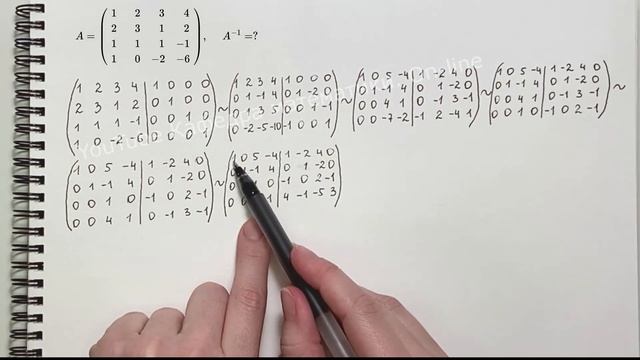 A = ( 1 2 3 4
2 3 1 2
1 1 1 −1
1 0 −2 −6 ), A⁻¹ =?
( 1 2 3 4 | 1 0 0 0
2 3 1 2 | 0 1 0 0
1 1 1 -1 | 0 0 1 0
1 0 -2 -6 | 0 0 0 1 ) ~
( 1 2 3 4 | 1 0 0 0
0 1 -1 4 | 0 1 -2 0
0 5 | 0 0 1 -1
0 -2 -5 -10 | -1 0 0 1 ) ~
( 1 0 5 -4 | 1 -2 4 0
0 1 -1 4 | 0 1 -2 0
0 0 4 1 | 0 -1 3 -1
0 0 -7 -2 | -1 2 -4 1 ) ~
( 1 0 5 -4 | 1 -2 4 0
0 1 -1 4 | 0 1 -2 0
0 0 4 1 | 0 -1 3 -1
0 0 1 0 | -1 0 2 -1 ) ~
( 1 0 5 -4 | 1 -2 4 0
0 1 -1 4 | 0 1 -2 0
0 0 1 0 | -1 0 2 -1
0 0 4 1 | 0 -1 3 -1 ) ~
( 1 0 5 -4 | 1 -2 4 0
-1 4 | 0 1 -2 0
0 0 | -1 0 2 -1
0 1 | 4 -1 -5 3 )
YouTube on-line